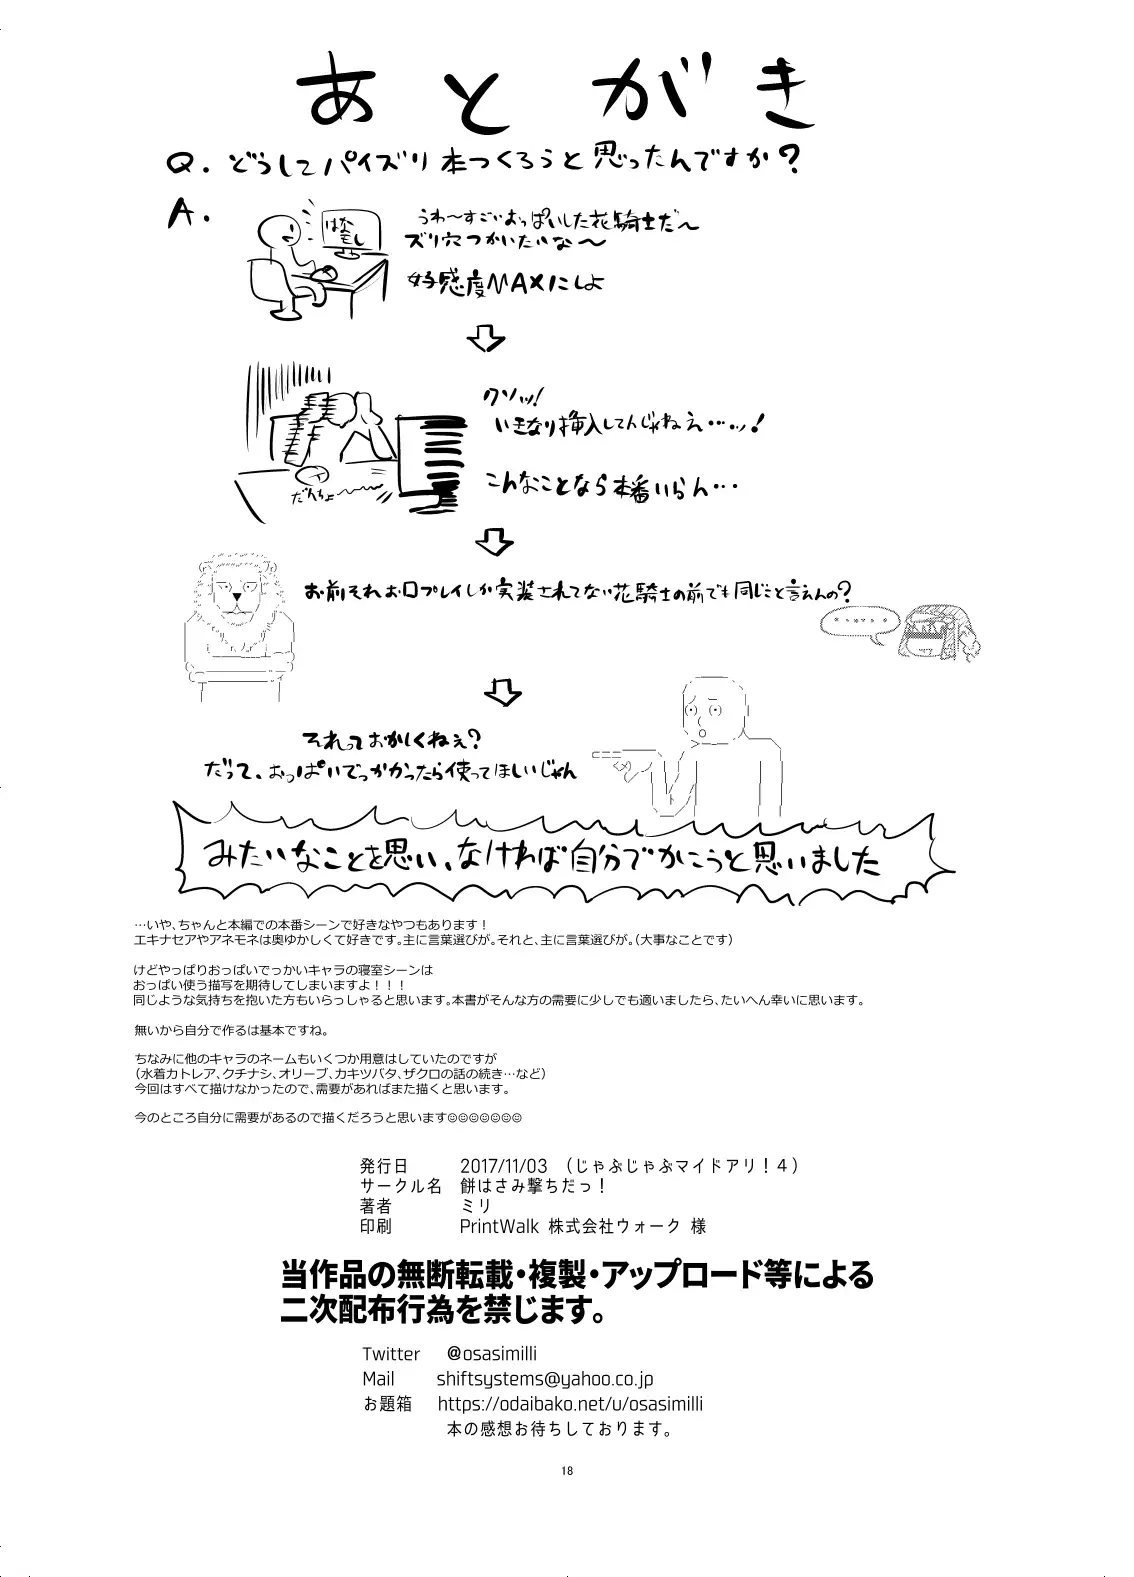 あとがき
Q. どうしてパイズリ本つくろうと思ったんですか？
A.
はな
もし
うわ～すごいおっぱいした花騎士だ～
ズリ穴つかいたいな～
好感度MAXにしよ
クソッ！
いきなり挿入してんじゃねぇ…ッ！
だんちょ～～
こんなことなら本番いらん…
お前それお口プレイしか実装されてない花騎士の前でも同じこと言えんの？
それっておかしくねぇ？
だって、おっぱいでっかかったら使ってほしいじゃん
みたいなことを思い、なければ自分でかこうと思いました
…いや、ちゃんと本編での本番シーンで好きなやつもあります！
エキナセアやアネモネは奥ゆかしくて好きです。主に言葉選びが。それと、主に言葉選びが。（大事なことです）
けどやっぱりおっぱいでっかいキャラの寝室シーンは
おっぱい使う描写を期待してしまいますよ！！！
同じような気持ちを抱いた方もいらっしゃると思います。本書がそんな方の需要に少しでも適いましたら、たいへん幸いに思います。
無いから自分で作るは基本ですね。
ちなみに他のキャラのネームもいくつか用意はしていたのですが
（水着カトレア、クチナシ、オリーブ、カキツバタ、ザクロの話の続き…など）
今回はすべて描けなかったので、需要があればまた描くと思います。
今のところ自分に需要があるので描くだろうと思います☺☺☺☺☺☺☺
発行日 2017/11/03 （じゃぶじゃぶマイドアリ！４）
サークル名 餅はさみ撃ちだっ！
著者 ミリ
印刷 PrintWalk 株式会社ウォーク 様
当作品の無断転載・複製・アップロード等による
二次配布行為を禁じます。
Twitter @osasimilli
Mail shiftsystems@yahoo.co.jp
お題箱 https://odaibako.net/u/osasimilli
本の感想お待ちしております。
18